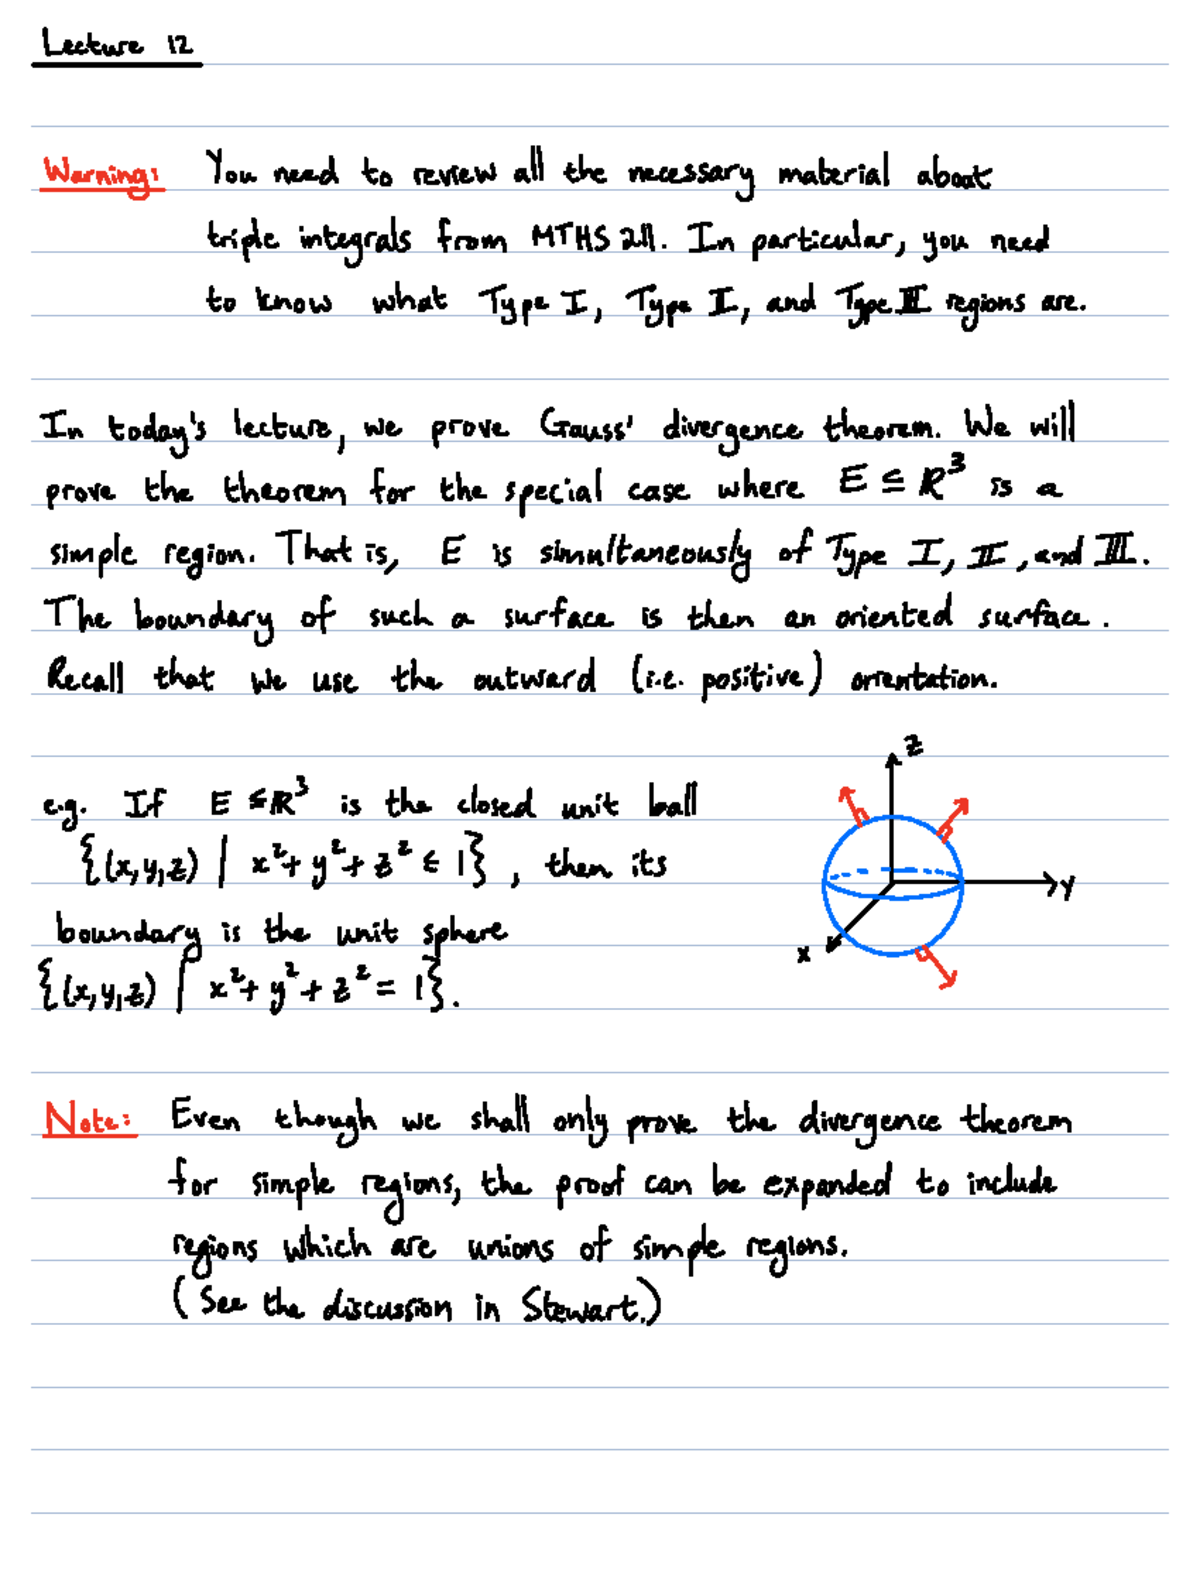 Lecture 12
Warning: You need to review all the necessary material about
triple integrals from MTHS 211. In particular, you need
to know what Type I, Type II, and Type III regions are.
In today's lecture, we prove Gauss' divergence theorem. We will
prove the theorem for the special case where E ⊆ ℝ³ is a
simple region. That is, E is simultaneously of Type I, II, and III.
The boundary of such a surface is then an oriented surface.
Recall that we use the outward (i.e. positive) orientation.
e.g. If E ⊆ ℝ³ is the closed unit ball
{(x,y,z) | x² + y² + z² ≤ 1}, then its
boundary is the unit sphere
{(x,y,z) | x² + y² + z² = 1}.
z
y
x
Note: Even though we shall only prove the divergence theorem
for simple regions, the proof can be expanded to include
regions which are unions of simple regions.
(See the discussion in Stewart.)